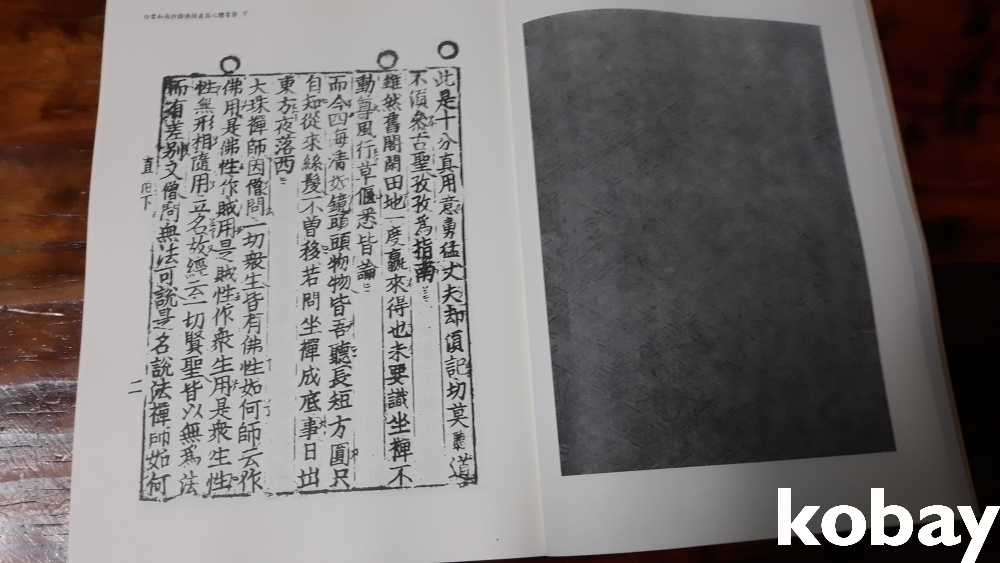 白雲和尚抄錄佛祖直指心體要節 下
此是十分真用意勇猛丈夫却須記切莫聽道
不須叅古聖孜孜為指南
雖然舊閣閑田地一度贏來得也未要識坐禪不
動尊風行草偃悉皆論
而今四海清如鏡頭頭物物皆吾聽長短方圓只
自知從來絲髮不曾移若問坐禪成底事日出
東方夜落西
大珠禪師因僧問一切衆生皆有佛性如何師云作
佛用是佛性作賊用是賊性作衆生用是衆生性
性無形相隨用立名故經云一切賢聖皆以無為法
而有差別又僧問無法可說是名說法禪師如何
直 下
二
kobay